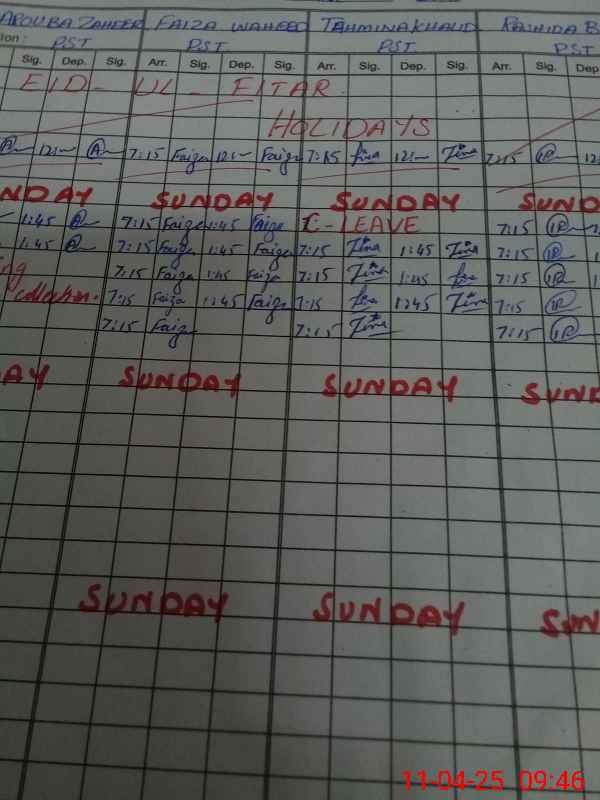 AROUBA ZAHEER FAIZA WAHEED TAHMINA KHALID RASHIDA B
ion: PST PST PST PST
Sig. Dep. Sig. Arr. Sig. Dep. Sig. Arr. Sig. Dep. Sig. Arr. Sig. Dep
EID- UL - FITAR
HOLIDAYS
12:- 7:15 Faiza 12:- Faiza 7:15 12:- 7:15
NDAY SUNDAY SUNDAY SUND
1:45 7:15 Faiza 1:45 Faiza C-LEAVE 7:15
1:45 7:15 Faiza 1:45 Faiza 7:15 1:45 7:15
ing 7:15 Faiza 1:45 Faiza 7:15 1:45 7:15
collection. 7:15 Faiza 1:45 Faiza 7:15 1:45 7:15
7:15 Faiza 7:15 7:15
AY SUNDAY SUNDAY SUND
SUNDAY SUNDAY SUN
11-04-25 09:46